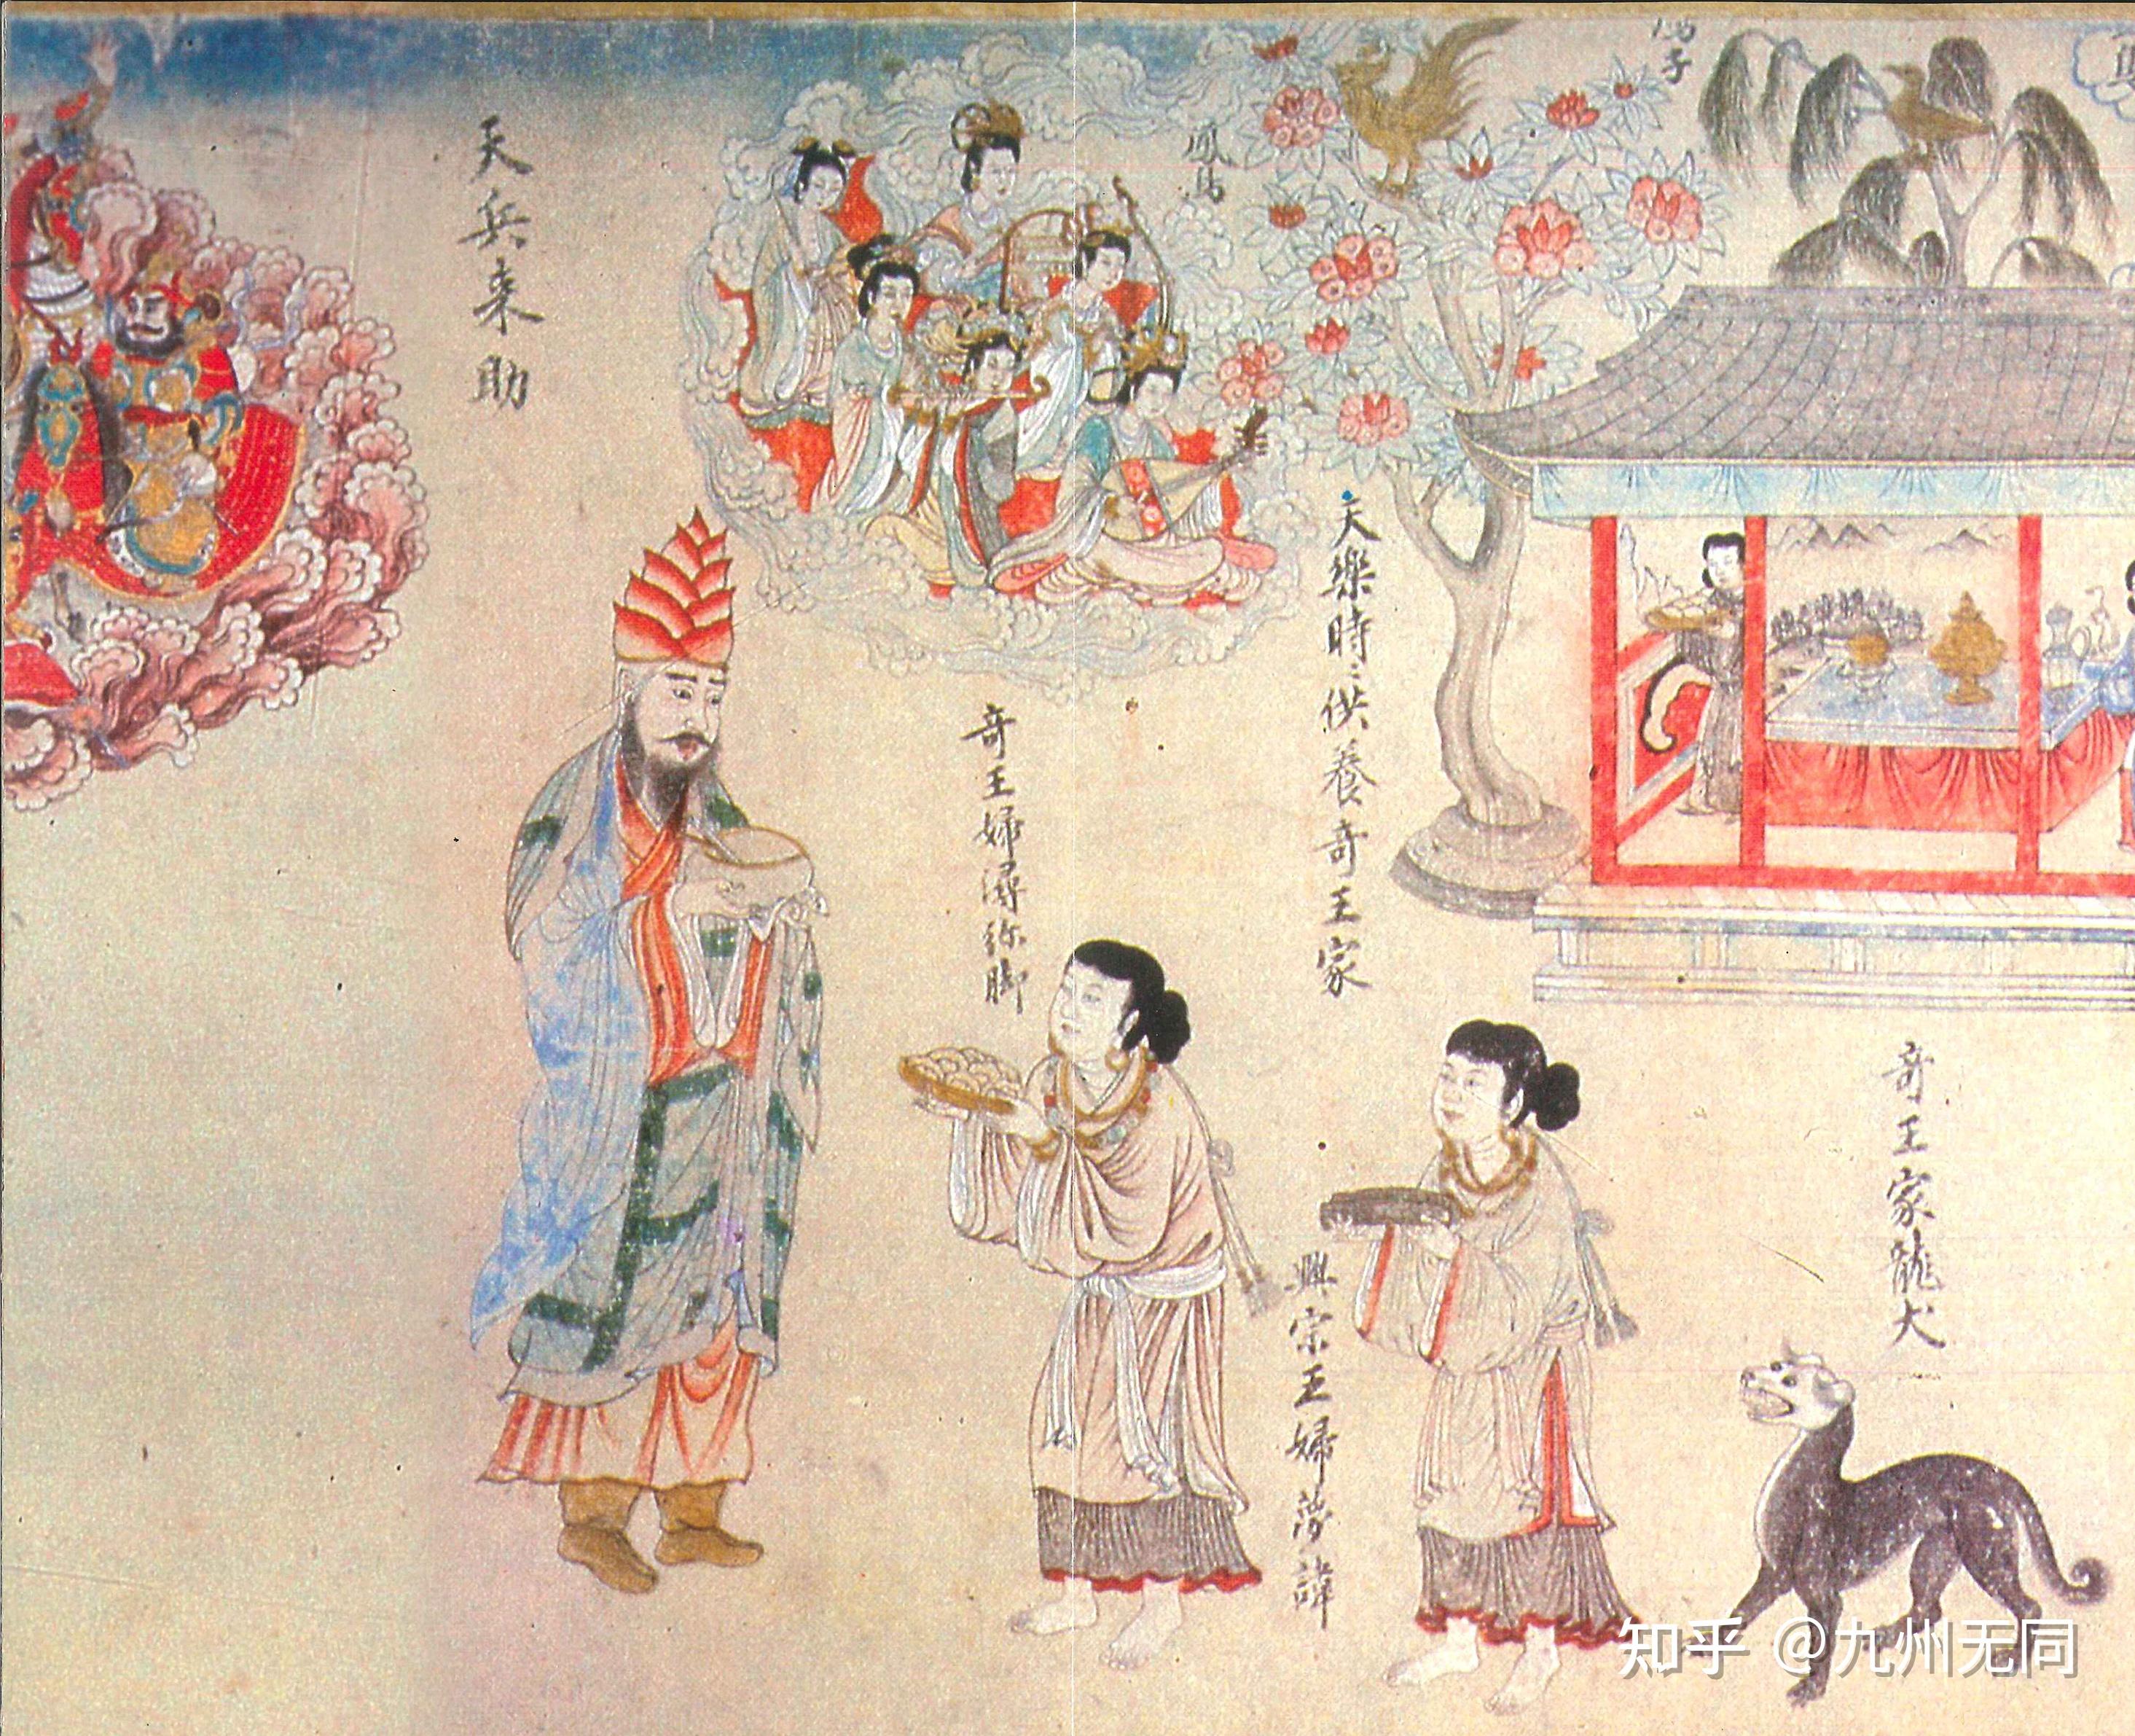 奇王家龍犬
天樂時〻供養奇王家
興宗王婦蒙諱
鳳鳥
奇王婦潯弥脚
天兵来助
知乎 @九州无同